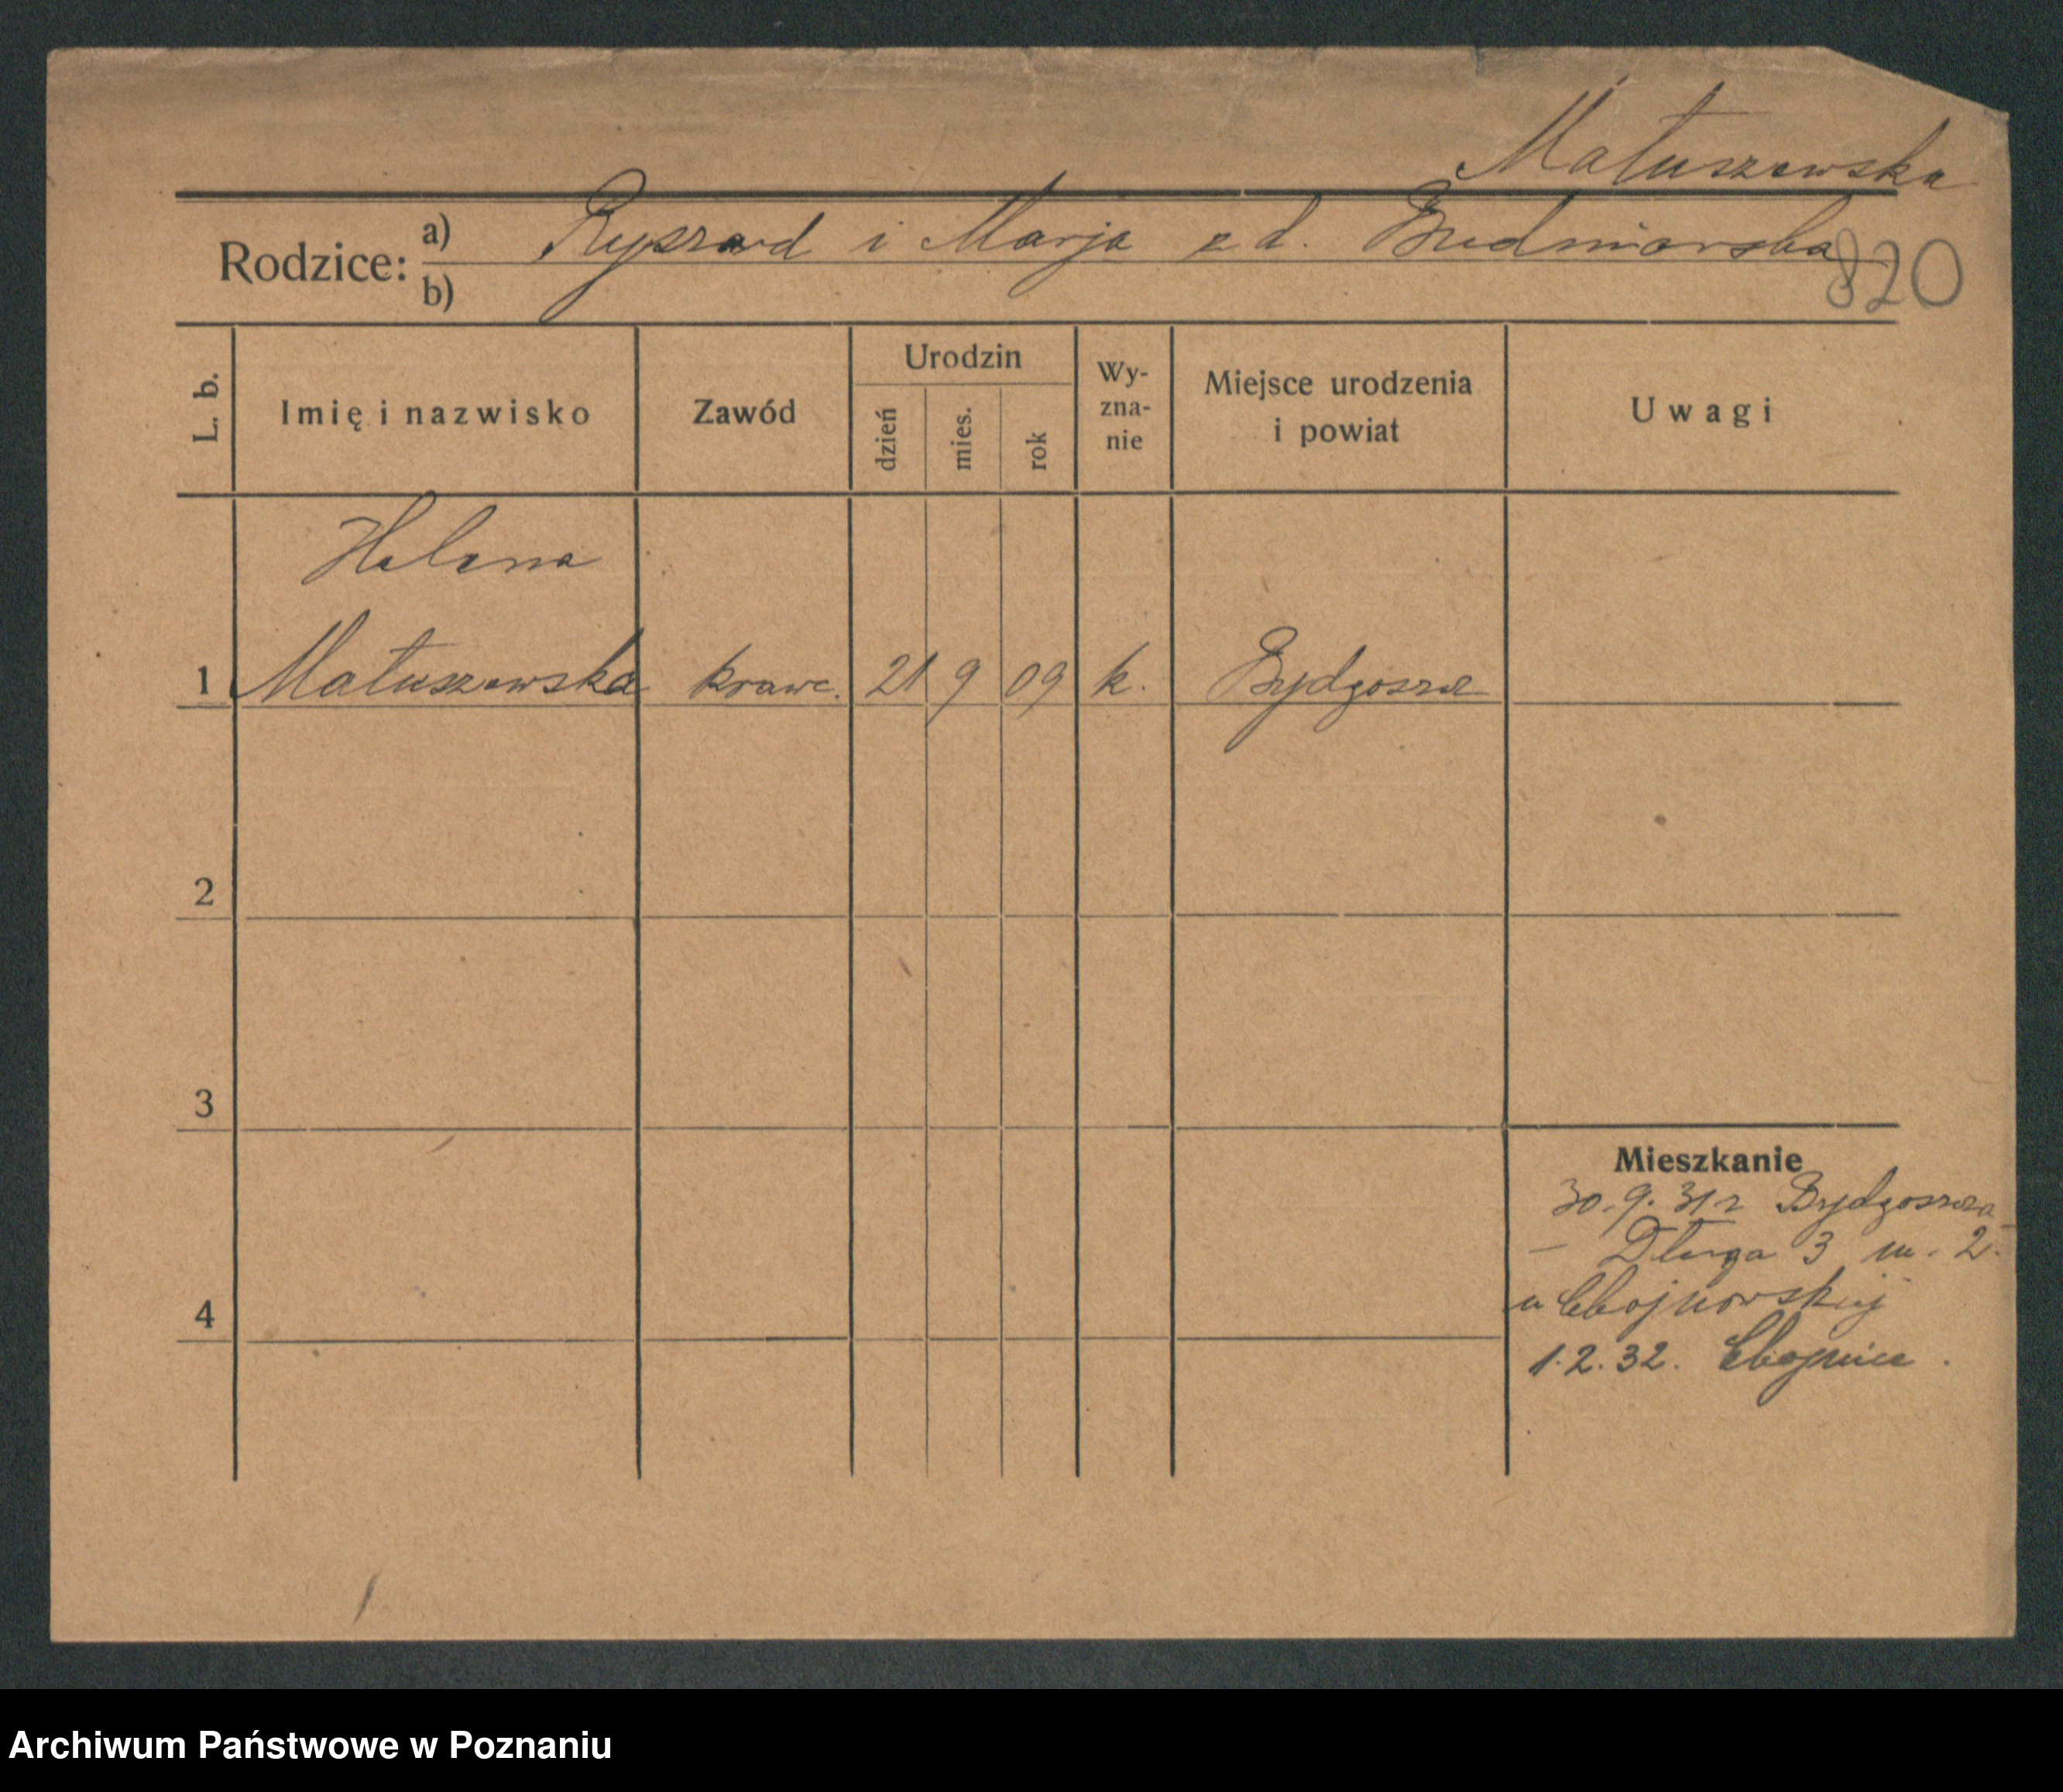 Matuszewska
Rodzice: a) Ryszard i Marja z d. Bredniarska
b)
820
L. b.
Imię i nazwisko
Zawód
Urodzin
dzień
mies.
rok
Wy-
zna-
nie
Miejsce urodzenia
i powiat
Uwagi
Helena
1 Matuszewska krawc. 21 9 09 k. Bydgoszcz
2
3
Mieszkanie
30.9.31 r Bydgoszcza
– Długa 3 m. 2.
u Chojnowskiej
4
1.2.32. Chojnice.
Archiwum Państwowe w Poznaniu